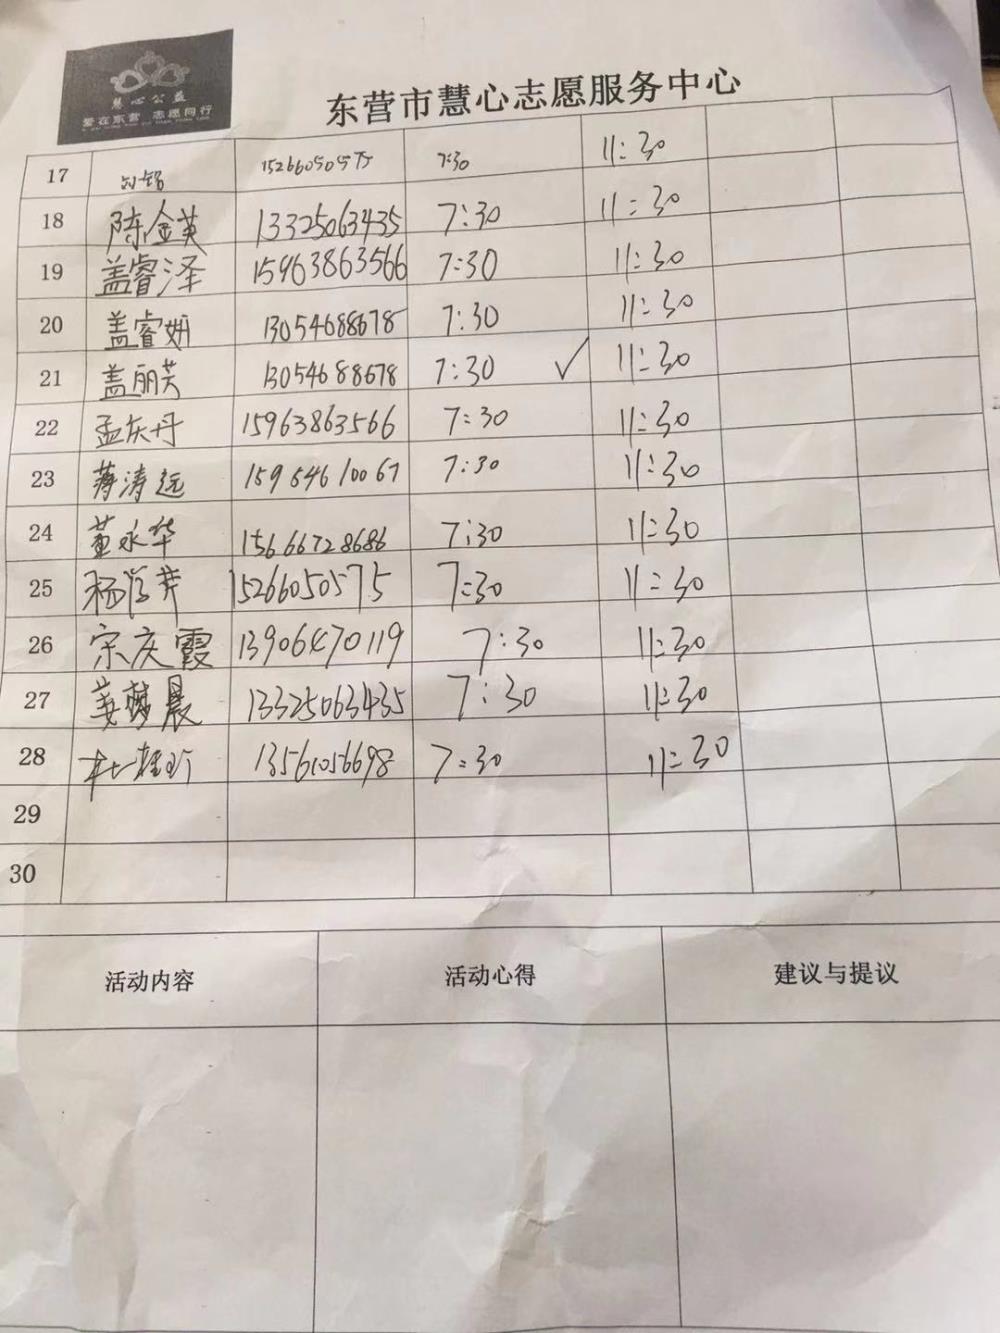 慧心公益
爱在东营 志愿同行
东营市慧心志愿服务中心
17 7:30 11:30
18 陈金英 13325063435 7:30 11:30
19 盖睿泽 15963863566 7:30 11:30
20 盖睿妍 13054688678 7:30 11:30
21 盖丽芳 13054688678 7:30 ✓ 11:30
22 孟庆丹 15963863566 7:30 11:30
23 蒋涛远 15954610067 7:30 11:30
24 董永华 15666728686 7:30 11:30
25 15266050575 7:30 11:30
26 宗庆霞 13906470119 7:30 11:30
27 姜梦晨 13325063435 7:30 11:30
28 13561056698 7:30 11:30
29
30
活动内容 活动心得 建议与提议